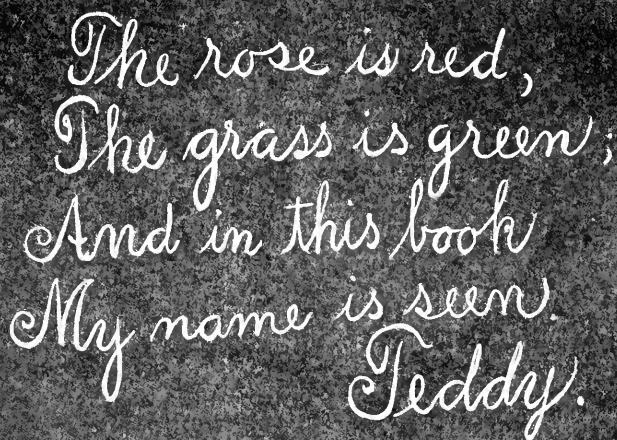 The rose is red,
The grass is green;
And in this book
My name is seen.
Teddy.